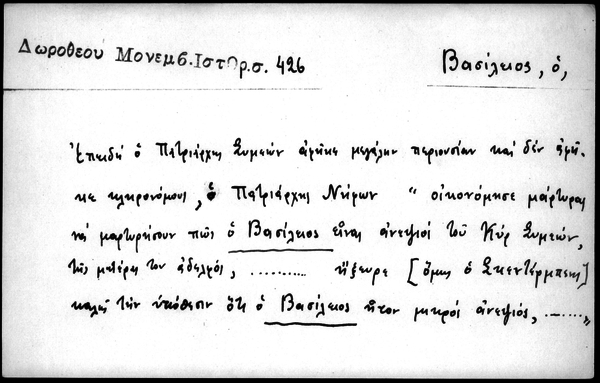 Δωροθεου Μονεμβ. Ιστορ. σ. 426
Βασίλειος, ὁ,
Ἐπειδὴ ὁ Πατριάρχης Συμεὼν ἀφῆκε μεγάλην περιουσίαν καὶ δὲν ἀφῆ-
κε κληρονόμους, ὁ Πατριάρχης Νήφων " οἰκονόμησε μάρτυρας
νὰ μαρτυρήσουν πῶς ὁ Βασίλειος εἶναι ἀνεψιὸς τοῦ Κὺρ Συμεών,
τῆς μητέρας του ἀδελφός, .......... ἤξευρε [ὅμως ὁ Σκεντέρμπεης]
καλὰ τὴν ὑπόθεσιν ὅτι ὁ Βασίλειος ἦτον μικρὸς ἀνεψιὸς, ........"